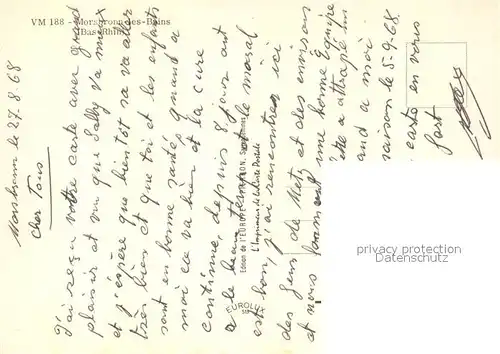 VM 188 - Morsbronn-les-Bains
(Bas-Rhin)
Morsbronn le 27.8.68
Cher Tous
J'ai reçu votre carte avec grand
plaisir et vu que Sally va mieux
et j'espère que bientôt sa va aller
très bien et que toi et les enfants
sont en bonne santés quand a
moi ca va bien et la cure
continue, depuis 8 jour ont
a le beau temps et le moral
est bon, j'ai rencontrer ici
des gens de Metz et des environs
et nous formons une bonne Equipe
être a attrapé un
and a moi
raison le 5-9-68.
carte en vous
fort
Edition de l'EUROPE
L'Imprimeur de la Carte Postale
EUROLUX
privacy protection
Datenschutz